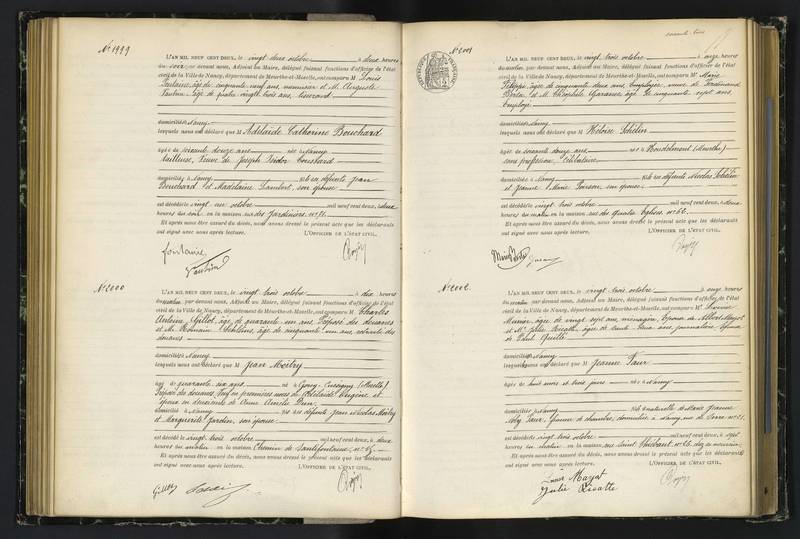 N° 1999
L'AN MIL NEUF CENT DEUX, le vingt deux octobre à deux heures
du soir, par devant nous, Adjoint au Maire, délégué faisant fonctions d'officier de l'état
civil de la Ville de Nancy, département de Meurthe-et-Moselle, ont comparu M Louis
Fontaine, âgé de cinquante neuf ans, menuisier et M. Auguste
âgé de quatre vingt trois ans, tisserand
domiciliés à Nancy
lesquels nous ont déclaré que M Adélaïde Catherine Bouchard
âgée de soixante douze ans née à Nancy
tailleuse, Veuve de Joseph
domiciliée à Nancy fille des défunts Jean
Bouchard et Madelaine Lambert, son épouse
est décédée le vingt un octobre mil neuf cent deux, à deux
heures du soir, en la maison rue des Jardiniers n° 71.
Et après nous être assuré du décès, nous avons dressé le présent acte que les déclarants
ont signé avec nous après lecture. L'OFFICIER DE L'ÉTAT CIVIL,
fontaine
N° 2000
L'AN MIL NEUF CENT DEUX, le vingt trois octobre à dix heures
du matin, par devant nous, Adjoint au Maire, délégué faisant fonctions d'officier de l'état
civil de la Ville de Nancy, département de Meurthe-et-Moselle, ont comparu M Charles
Antoine Gillot, âgé de quarante un ans, Préposé des douanes
et M. Romain âgé de cinquante un ans, retraité des
douanes
domiciliés à Nancy
lesquels nous ont déclaré que M Jean Moitry
âgé de quarante six ans né à
Préposé des douanes, Veuf en premières noces de Adélaïde et
époux en deuxièmes de Anne Amélie
domicilié à Nancy fils des défunts Jean Nicolas Moitry
et Marguerite Jardin, son épouse
est décédé le vingt trois octobre mil neuf cent deux, à deux
heures du matin, en la maison Chemin de Santifontaine n°
Et après nous être assuré du décès, nous avons dressé le présent acte que les déclarants
ont signé avec nous après lecture. L'OFFICIER DE L'ÉTAT CIVIL,
Gillot
N° 2001
L'AN MIL NEUF CENT DEUX, le vingt trois octobre à onze heures
du matin, par devant nous, Adjoint au Maire, délégué faisant fonctions d'officier de l'état
civil de la Ville de Nancy, département de Meurthe-et-Moselle, ont comparu Me Marie
âgée de cinquante deux ans, employée, veuve de Ferdinand
et M. Théophile âgé de cinquante sept ans
employé
domiciliés à Nancy
lesquels nous ont déclaré que M Héloïse Schélin
âgée de soixante douze ans née à Houdelmont (Meurthe)
sans profession, célibataire
domiciliée à Nancy fille des défunts Nicolas Schélin
et Jeanne Marie Poirson, son épouse
est décédée le vingt trois octobre mil neuf cent deux, à deux
heures du matin en la maison rue des Quatre Eglises n° 62.
Et après nous être assuré du décès, nous avons dressé le présent acte que les déclarants
ont signé avec nous après lecture. L'OFFICIER DE L'ÉTAT CIVIL,
N° 2002
L'AN MIL NEUF CENT DEUX, le vingt trois octobre à onze heures
du matin, par devant nous, Adjoint au Maire, délégué faisant fonctions d'officier de l'état
civil de la Ville de Nancy, département de Meurthe-et-Moselle, ont comparu Me
âgée de vingt sept ans, ménagère, Epouse de Albert Mayot
et Me Julie Ricatte, âgée de trente deux ans, journalière, Epouse
de Paul
domiciliés à Nancy
lesquels nous ont déclaré que M Jeanne Faur
âgée de huit mois et trois jours née à Nancy
domiciliée à Nancy fille naturelle de Marie Jeanne
Faur, femme de chambre, domiciliée à Nancy, rue de Serre n° 21.
est décédée le vingt trois octobre mil neuf cent deux, à sept
heures du matin, en la maison, rue Saint Thiébaut n° 26 chez sa nourrice
Et après nous être assuré du décès, nous avons dressé le présent acte que les déclarants
ont signé avec nous après lecture. L'OFFICIER DE L'ÉTAT CIVIL,
Mayot
Julie Ricatte